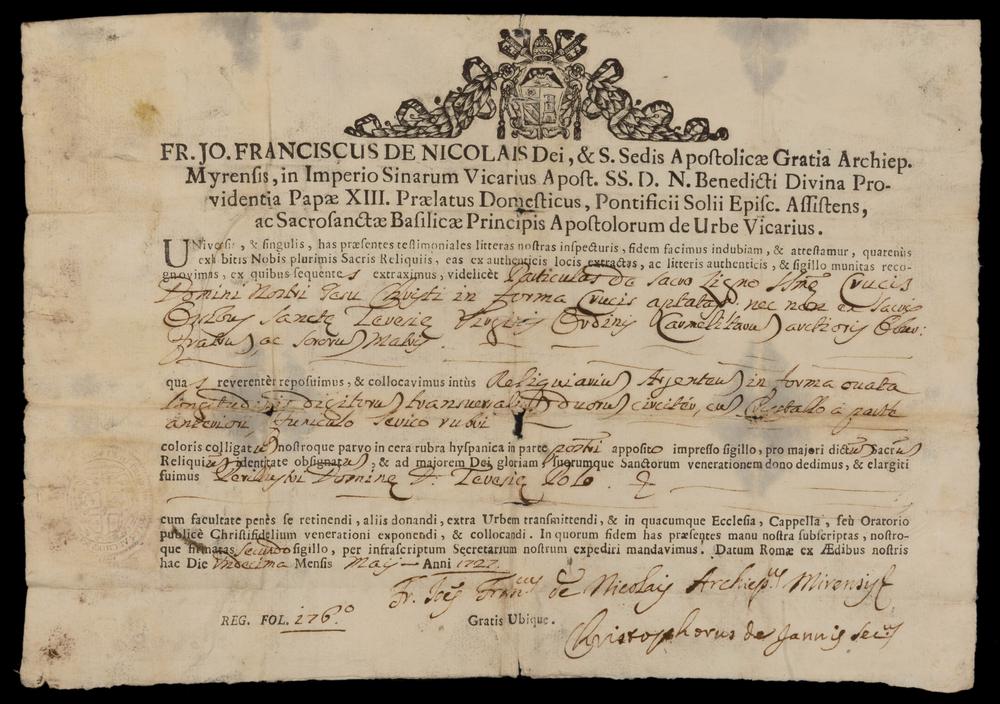 FR. JO. FRANCISCUS DE NICOLAIS Dei, & S. Sedis Apostolicæ Gratia Archiep.
Myrensis, in Imperio Sinarum Vicarius Apost. SS. D. N. Benedicti Divina Pro-
videntia Papæ XIII. Prælatus Domesticus, Pontificii Solii Episc. Assistens,
ac Sacrosanctæ Basilicæ Principis Apostolorum de Urbe Vicarius.
UNiversis, & singulis, has præsentes testimoniales litteras nostras inspecturis, fidem facimus indubiam, & attestamur, quatenùs
exhibitis Nobis plurimis Sacris Reliquiis, eas ex authenticis locis extractas, ac litteris authenticis, & sigillo munitas reco-
gnovimus, ex quibus sequentes extraximus, videlicèt Particulas de sacro Ligno SSme Crucis
Domini Nostri Jesu Christi in forma Crucis aptatas nec non ex sacris
Ossibus Sancte Teresie Virginis Ordinis Carmelitarum
fratrum ac sororum Matris
quas reverentèr reposuimus, & collocavimus intùs Reliquiarium Argenteum in forma ouata
longitudinis digitorum transuersalium duorum circiter, cum Cristallo a parte
anteriori, funiculo serico rubri
coloris colligatum nostroque parvo in cera rubra hyspanica in parte postri apposito impresso sigillo, pro majori dictarum Sacrarum
Reliquiarum identitate obsignatum, & ad majorem Dei gloriam, suorumque Sanctorum venerationem dono dedimus, & elargiti
fuimus Domine D. Teresie Polo
cum facultate penès se retinendi, aliis donandi, extra Urbem transmittendi, & in quacumque Ecclesia, Cappella, seù Oratorio
publicè Christifidelium venerationi exponendi, & collocandi. In quorum fidem has præsentes manu nostra subscriptas, nostro-
que firmatas secundo sigillo, per infrascriptum Secretarium nostrum expediri mandavimus. Datum Romæ ex Ædibus nostris
hac Die Vndecima Mensis Maij Anni 1727.
Fr. Joes Francus de Nicolais Archiepus Mirensis
REG. FOL. 176º. Gratis Ubique.
Christophorus de Jannis Secus